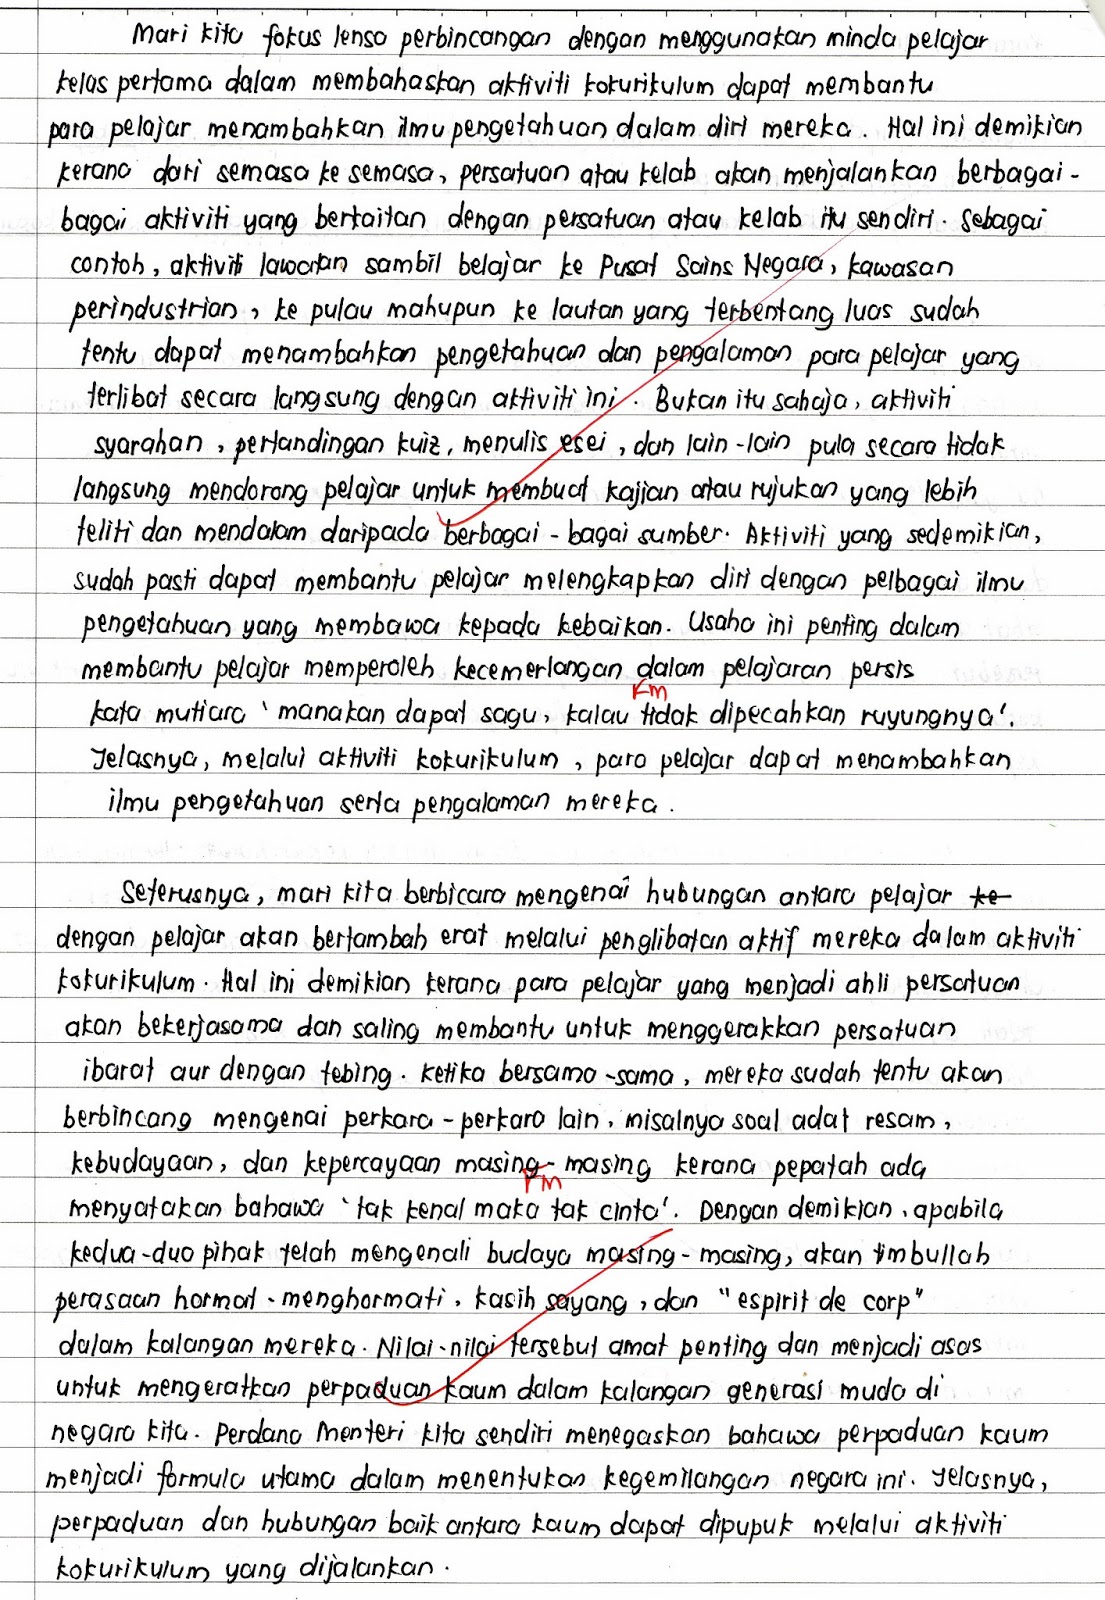 Mari kita fokus lensa perbincangan dengan menggunakan minda pelajar
kelas pertama dalam membahaskan aktiviti kokurikulum dapat membantu
para pelajar menambahkan ilmu pengetahuan dalam diri mereka. Hal ini demikian
kerana dari semasa ke semasa, persatuan atau kelab akan menjalankan berbagai-
bagai aktiviti yang berkaitan dengan persatuan atau kelab itu sendiri. Sebagai
contoh, aktiviti lawatan sambil belajar ke Pusat Sains Negara, kawasan
perindustrian, ke pulau mahupun ke lautan yang terbentang luas sudah
tentu dapat menambahkan pengetahuan dan pengalaman para pelajar yang
terlibat secara langsung dengan aktiviti ini. Bukan itu sahaja, aktiviti
syarahan, pertandingan kuiz, menulis esei, dan lain-lain pula secara tidak
langsung mendorong pelajar untuk membuat kajian atau rujukan yang lebih
teliti dan mendalam daripada berbagai-bagai sumber. Aktiviti yang sedemikian,
sudah pasti dapat membantu pelajar melengkapkan diri dengan pelbagai ilmu
pengetahuan yang membawa kepada kebaikan. Usaha ini penting dalam
membantu pelajar memperoleh kecemerlangan dalam pelajaran persis
KM
kata mutiara 'manakan dapat sagu, kalau tidak dipecahkan ruyungnya'.
Jelasnya, melalui aktiviti kokurikulum, para pelajar dapat menambahkan
ilmu pengetahuan serta pengalaman mereka.
Seterusnya, mari kita berbicara mengenai hubungan antara pelajar ke
dengan pelajar akan bertambah erat melalui penglibatan aktif mereka dalam aktiviti
kokurikulum. Hal ini demikian kerana para pelajar yang menjadi ahli persatuan
akan bekerjasama dan saling membantu untuk menggerakkan persatuan
ibarat aur dengan tebing. Ketika bersama-sama, mereka sudah tentu akan
berbincang mengenai perkara-perkara lain, misalnya soal adat resam,
kebudayaan, dan kepercayaan masing-masing kerana pepatah ada
menyatakan bahawa 'tak kenal maka tak cinta'. Dengan demikian, apabila
kedua-dua pihak telah mengenali budaya masing-masing, akan timbullah
perasaan hormat-menghormati, kasih sayang, dan "espirit de corp"
dalam kalangan mereka. Nilai-nilai tersebut amat penting dan menjadi asas
untuk mengeratkan perpaduan kaum dalam kalangan generasi muda di
negara kita. Perdana Menteri kita sendiri menegaskan bahawa perpaduan kaum
menjadi formula utama dalam menentukan kegemilangan negara ini. Jelasnya,
perpaduan dan hubungan baik antara kaum dapat dipupuk melalui aktiviti
kokurikulum yang dijalankan.